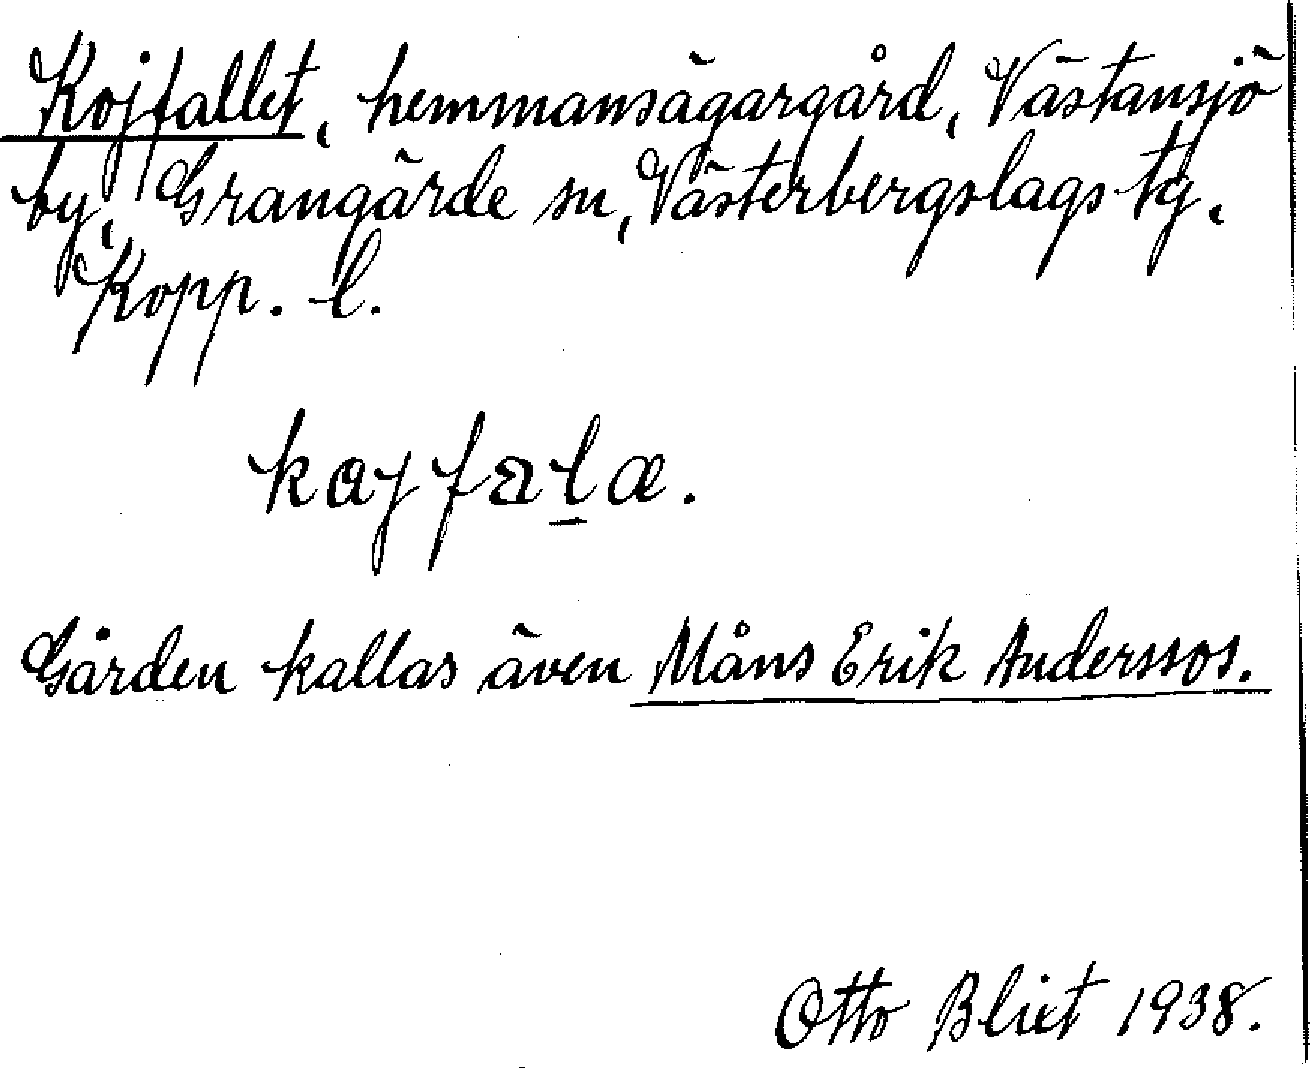 Kojfallet, hemmansägargård, Västansjö
by, Grangärde sn, Västerbergslags tg.
Kopp. l.
kajfala.
Gården kallas även Måns Erik Anderssos.
Otto Blixt 1938.